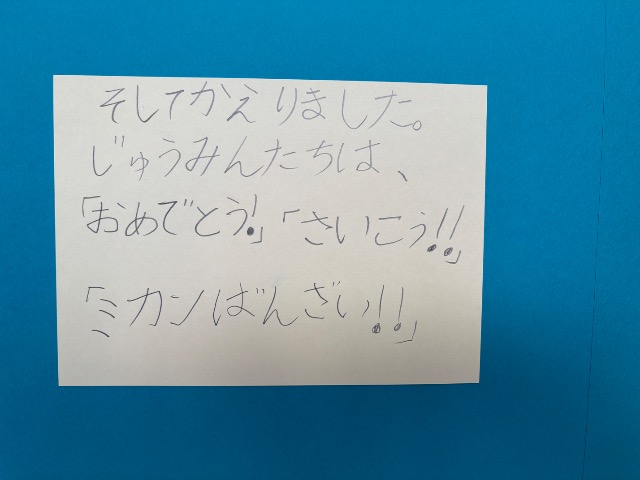 そしてかえりました。
じゅうみんたちは、
「おめでとう!」「さいこう!!」
「ミカンばんざい!!」